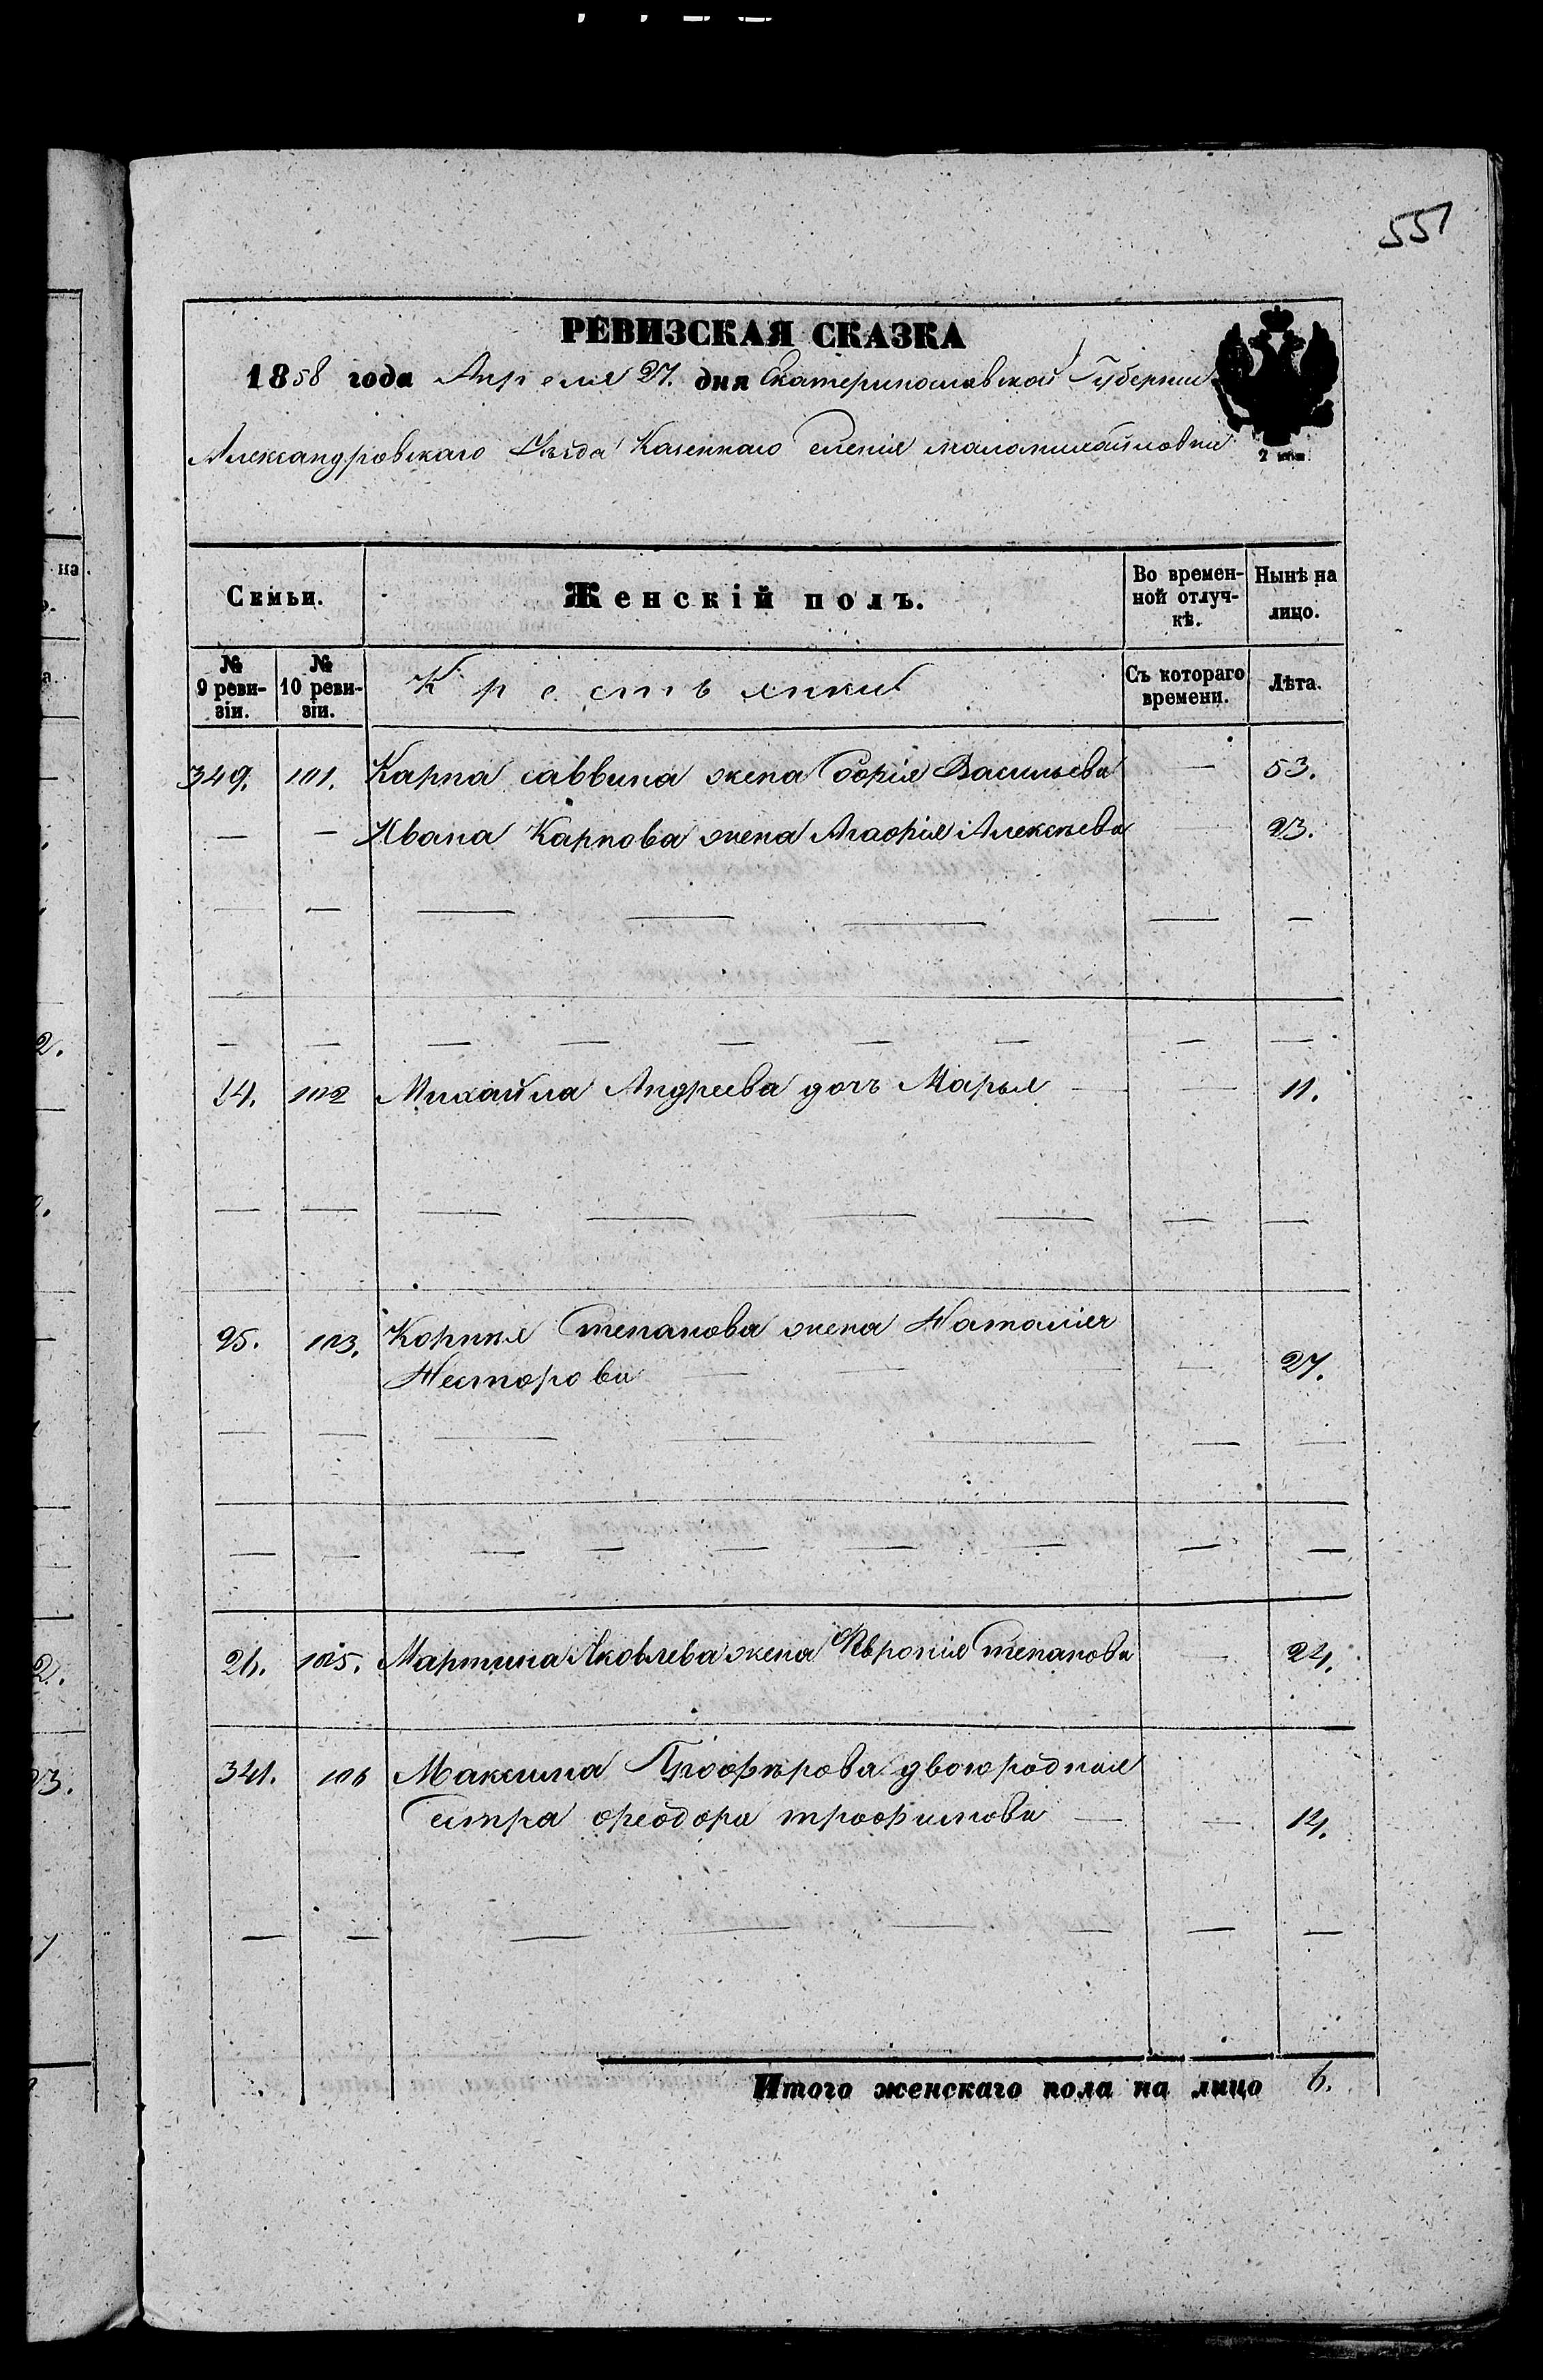 551
РЕВИЗСКАЯ СКАЗКА
1858 года Апреля 27. дня Екатеринославской Губернии
Александровскаго Уѣзда Казеннаго Селенія маломихайловки
2 коп.
Семьи. Женскій полъ. Во временной отлучкѣ. Нынѣ на лицо.
№ 9 ревизіи. № 10 ревизіи. Крестьянки Съ котораго времени. Лѣта.
349. 101. Карпа саввина жена Софія Васильева — 53.
— — Ивана Карпова жена Агафія Алексѣева — 23.
24. 102 Михайла Андреева дочь Марья — — 11.
25. 103. Корнея Степанова жена Наталія
Несторова — — — — 27.
26. 105. Мартина Яковлева жена Ѳевронія Степанова — 24.
341. 106 Максима двоюродная
Сестра феодора трофимова — — 14.
Итого женскаго пола на лицо 6.